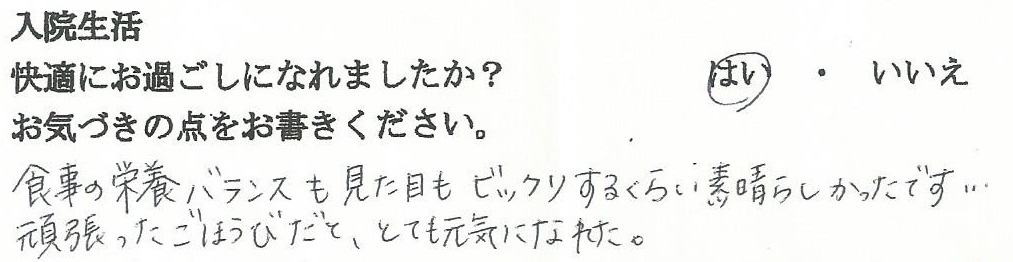 入院生活
快適にお過ごしになれましたか? はい ・ いいえ
お気づきの点をお書きください。
食事の栄養バランスも見た目もビックリするくらい素晴らしかったです…
頑張ったごほうびだと、とても元気になれた。